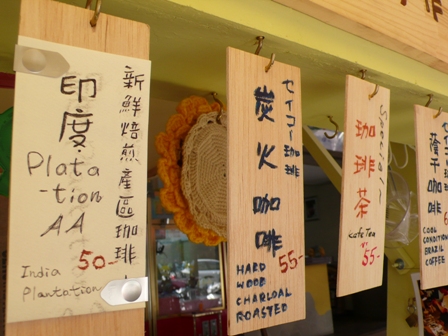 新鮮焙煎產區珈琲
印度
Plata
-tion
AA
50-
India
Plantation
セイコー珈琲
炭火咖啡
55-
HARD
WOOD
CHARLOAL
ROASTED
Special
珈琲茶
Kafe Tea
55-
蔭干咖啡
COOL
CONDITION
BRAZIL
COFFEE